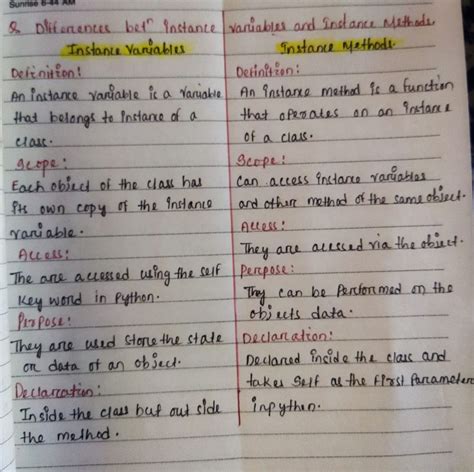 Sunrise 6-44 AM
Q Differences betn Instance variables and Instance Methods.
Instance Variables
Definition:
An instance variable is a variable
that belongs to instance of a
class.
Scope:
Each object of the class has
its own copy of the instance
variable.
Access:
The are accessed using the self
Key word in Python.
Perpose:
They are used store the state
or data of an object.
Declarcation:
Inside the class but out side
the method.
Instance Methods.
Definition:
An Instance method is a function
that operates on an instance
of a class.
Scope:
Can access instance variables
and other method of the same object.
Access:
They are accessed via the object.
Perpose:
They can be performed on the
objects data.
Declaration:
Declared inside the class and
takes self as the first Parameter
inpython.